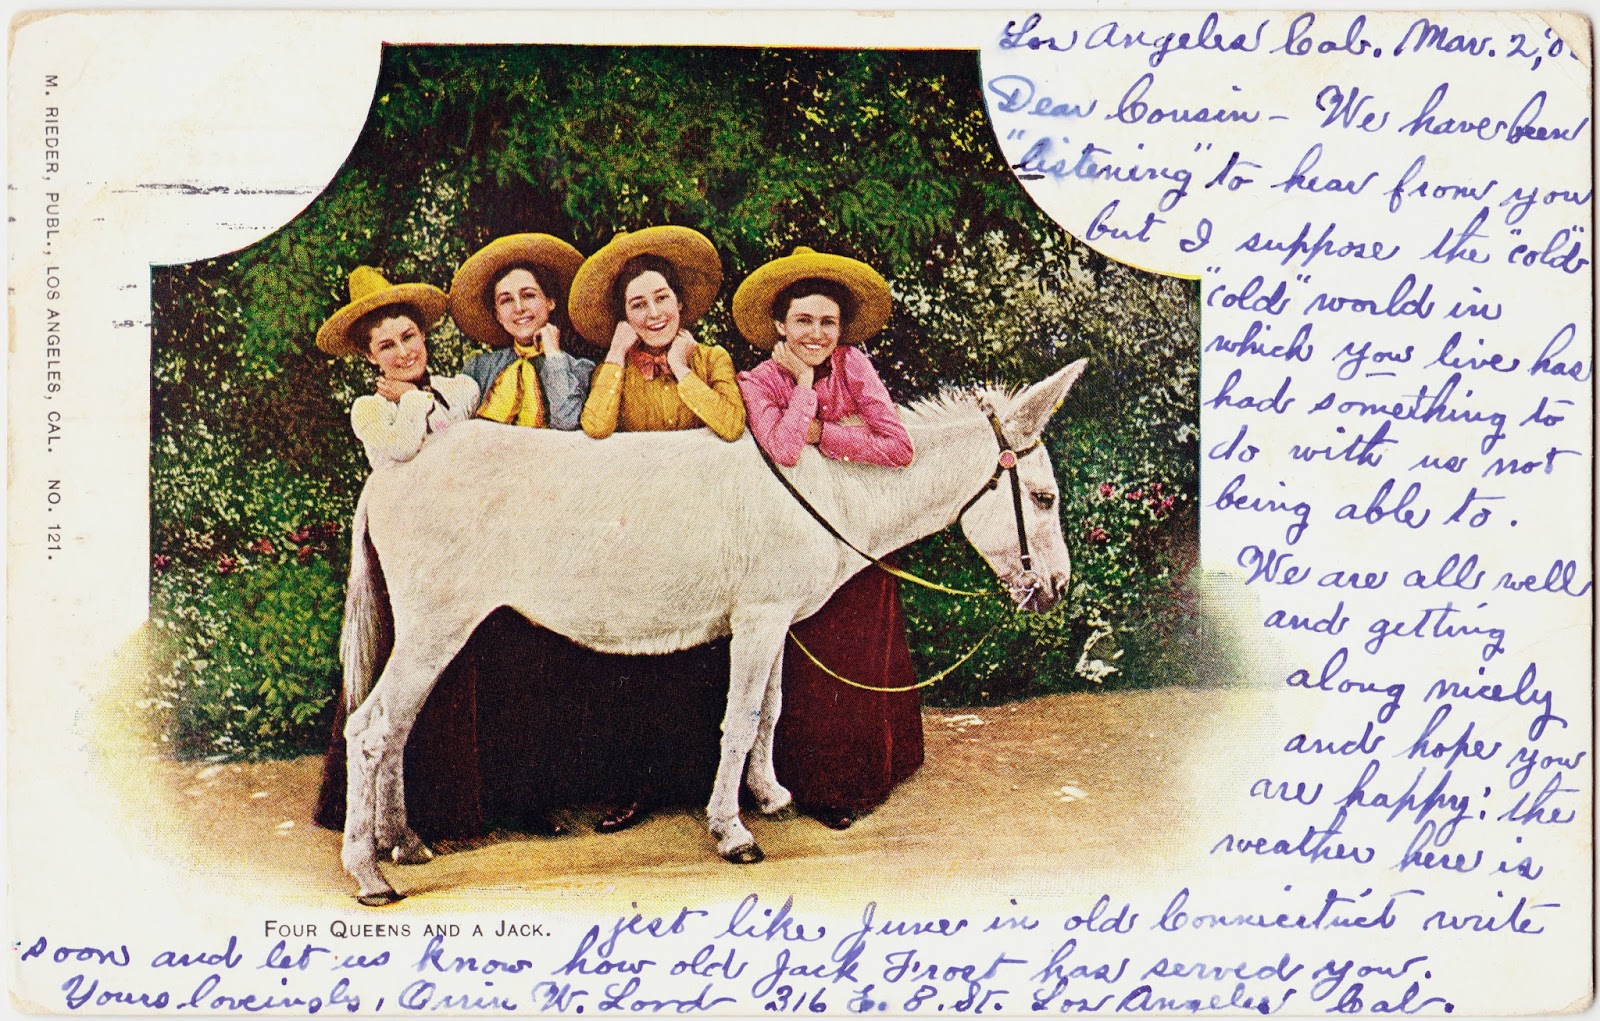 M. RIEDER, PUBL., LOS ANGELES, CAL. NO. 121.
Los Angeles Cal. Mar. 2,
Dear Cousin – We have been
"listening" to hear from you
but I suppose the "cold"
"cold" world in
which you live has
had something to
do with us not
being able to.
We are all well
and getting
along nicely
and hope you
are happy; the
weather here is
FOUR QUEENS AND A JACK.
jest like June in old Connecticut write
soon and let us know how old Jack Frost has served you.
Yours lovingly, Orrin W. Lord 316 E. 8. St. Los Angeles Cal.